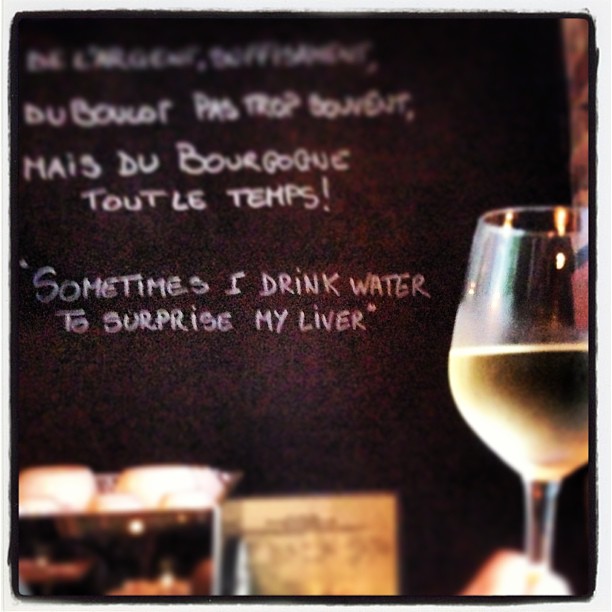 DE L'ARGENT, SUFFISAMENT,
DU BOULOT PAS TROP SOUVENT,
MAIS DU BOURGOGNE
TOUT LE TEMPS!
"SOMETIMES I DRINK WATER
TO SURPRISE MY LIVER"